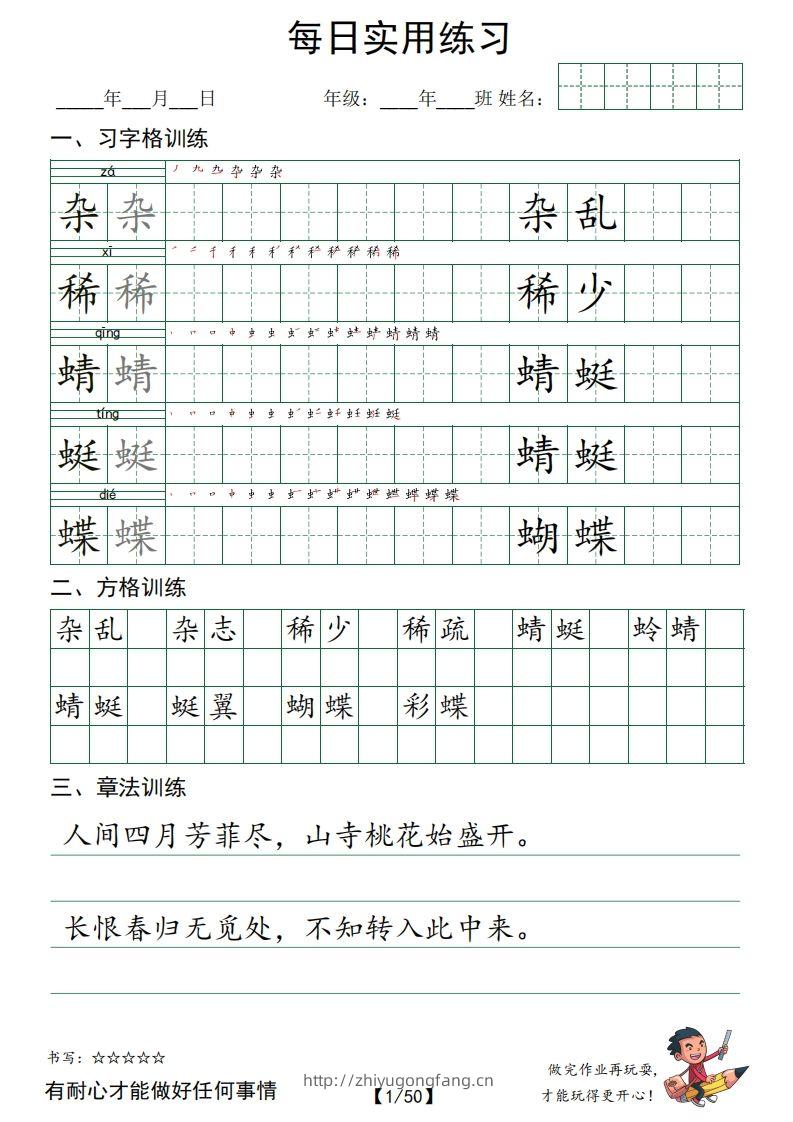 每日实用练习
_____年___月___日 年级：____年____班 姓名：
一、习字格训练
zá
杂 杂 杂 乱
xī
稀 稀 稀 少
qīng
蜻 蜻 蜻 蜓
tíng
蜓 蜓 蜻 蜓
dié
蝶 蝶 蝴 蝶
二、方格训练
杂 乱 杂 志 稀 少 稀 疏 蜻 蜓 蛉 蜻
蜻 蜓 蜓 翼 蝴 蝶 彩 蝶
三、章法训练
人间四月芳菲尽，山寺桃花始盛开。
长恨春归无觅处，不知转入此中来。
书写：☆☆☆☆☆
有耐心才能做好任何事情
http://zhiyugongfang.cn
【1/50】
做完作业再玩耍，
才能玩得更开心！